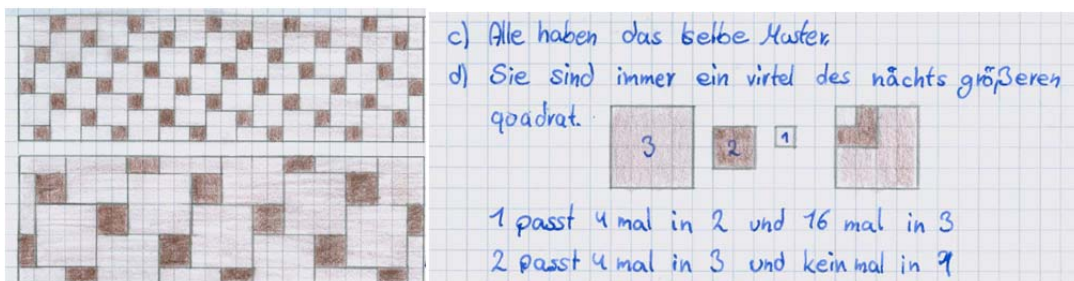 c) Alle haben das selbe Muster.
d) Sie sind immer ein virtel des nächts größeren
quadrat.
3 2 1
1 passt 4 mal in 2 und 16 mal in 3
2 passt 4 mal in 3 und kein mal in 1